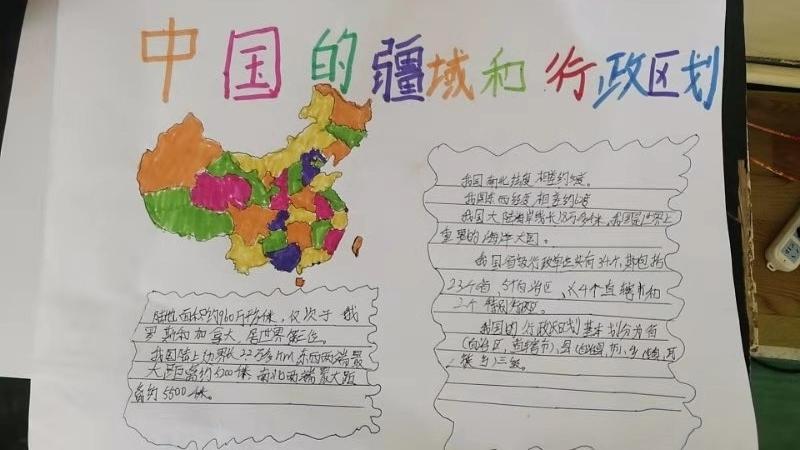 中国的疆域和行政区划
陆地面积约960万平方千米，仅次于俄
罗斯和加拿大，居世界第三位。
我国陆上边界长22万多km 东西两端最
大距离约5200千米 南北两端最大距
离约5500千米。
我国南北纬度相差约50度。
我国东西经度相差约60度
我国大陆海岸线长18万多千米，我国是世界上
重要的海洋大国。
我国省级行政单位共有34个，其包括
23个省、5个自治区、4个直辖市和
2个特别行政区。
我国的行政区划基本划分为省
(自治区、直辖市)、县(自治县、市)、乡(镇、民
族乡)三级。